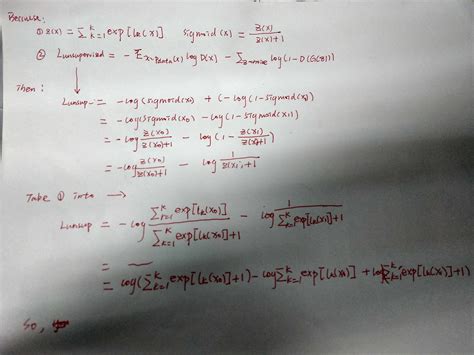 Because:
① Z(x) = Σ_{k=1}^{K} exp[l_k(x)] sigmoid(x) = Z(x)/(Z(x)+1)
② Lunsupervised = - E_{x~Pdata(x)} log D(x) - Σ_{z~noise} log(1 - D(G(z)))
Then:
Lunsup = -log(sigmoid(x₀) + (-log(1-sigmoid(x₁))
= -log(sigmoid(x₀) - log(1-sigmoid(x₁))
= -log Z(x₀)/(Z(x₀)+1) - log(1 - Z(x₁)/(Z(x₁)+1))
= -log Z(x₀)/(Z(x₀)+1) - log 1/(Z(x₁)+1)
Take ① into →
Lunsup = -log Σ_{k=1}^{K} exp[l_k(x₀)]/(Σ_{k=1}^{K} exp[l_k(x₀)]+1) - log 1/(Σ_{k=1}^{K} exp[l_k(x₁)]+1)
=
= log(Σ_{k=1}^{K} exp[l_k(x₀)]+1) - log Σ_{k=1}^{K} exp[l_k(x₀)] + log Σ_{k=1}^{K} exp[l_k(x₁)]+1)
So,